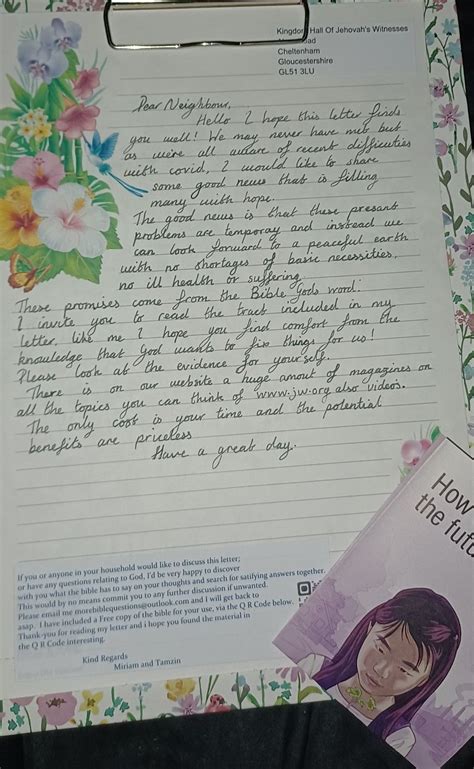 Kingdom Hall Of Jehovah's Witnesses
ad
Cheltenham
Gloucestershire
GL51 3LU
Dear Neighbour,
Hello I hope this letter finds
you well! We may never have met but
as we're all aware of recent difficulties
with covid, I would like to share
some good news that is filling
many with hope.
The good news is that these present
problems are temporay and instead we
can look forward to a peaceful earth
with no shortages of basic necessities,
no ill health or suffering.
These promises come from the Bible, Gods word.
I invite you to read the tract included in my
letter, like me I hope you find comfort from the
knowledge that God wants to fix things for us!
Please look at the evidence for yourself.
There is on our website a huge amout of magazines on
all the topics you can think of www.jw.org also videos.
The only cost is your time and the potential
benefits are priceless
Have a great day.
If you or anyone in your household would like to discuss this letter;
or have any questions relating to God, I'd be very happy to discover
with you what the bible has to say on your thoughts and search for satifying answers together.
This would by no means commit you to any further discussion if unwanted.
Please email me morebiblequestions@outlook.com and I will get back to
asap. I have included a Free copy of the bible for your use, via the Q R Code below.
Thank-you for reading my letter and i hope you found the material in
the Q R Code interesting.
Kind Regards
Miriam and Tamzin
How
the futu